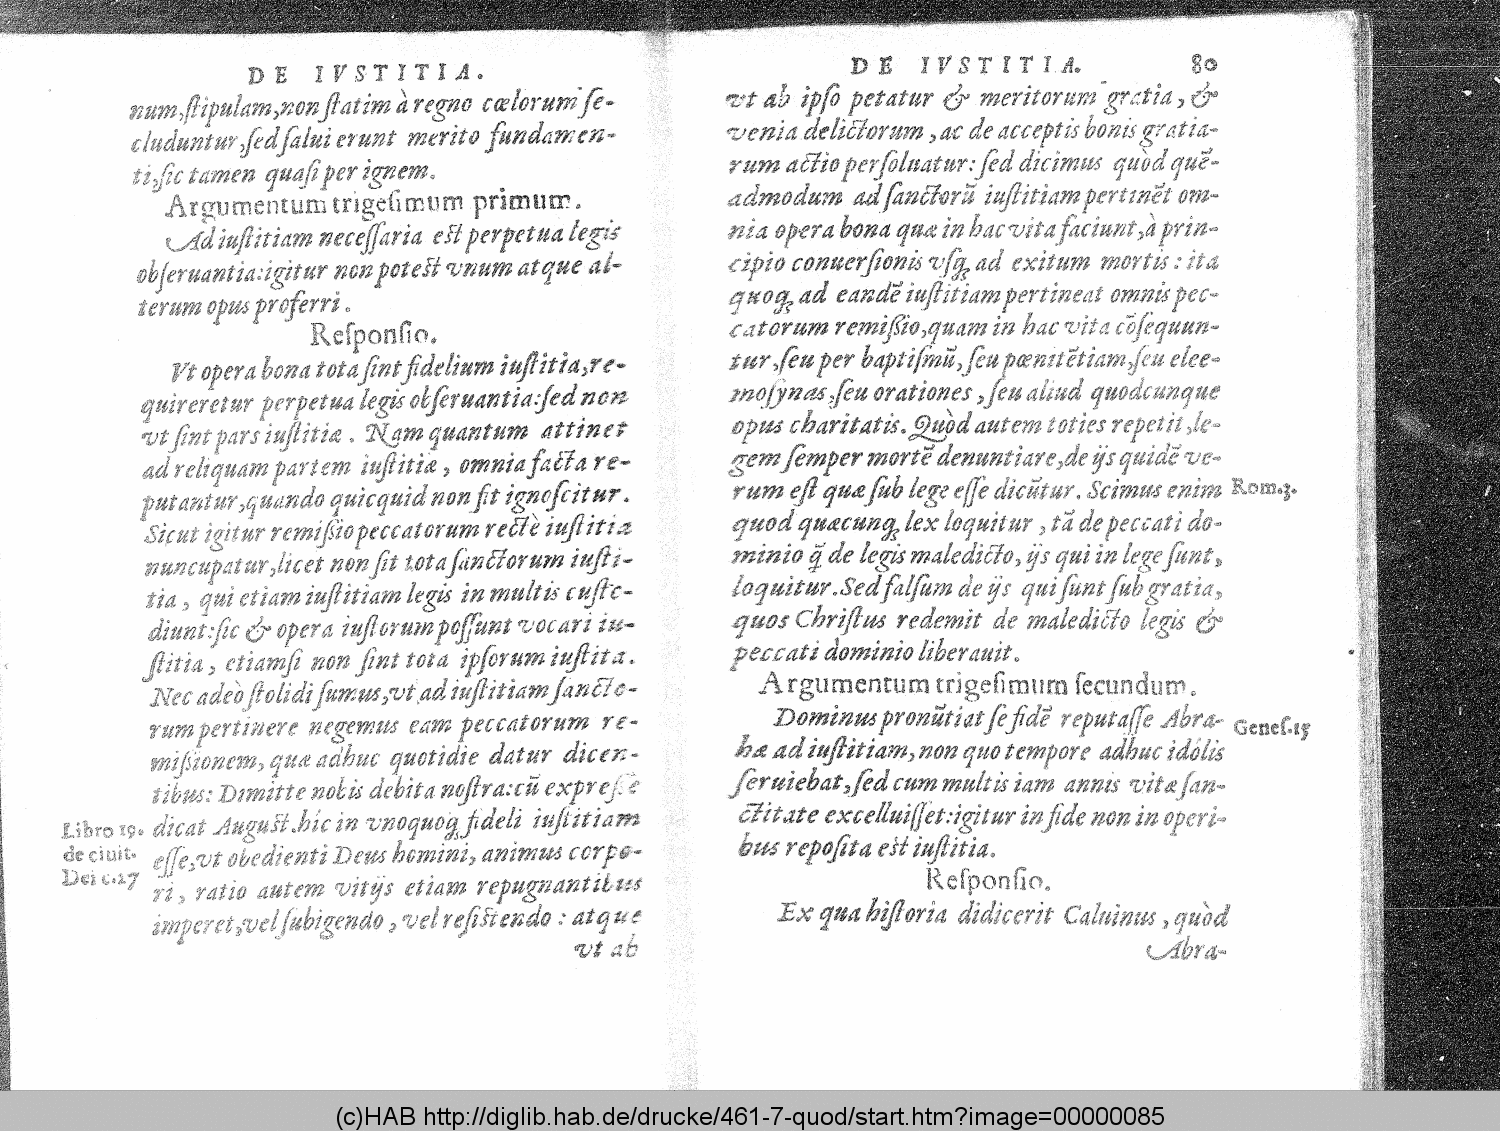 DE IVSTITIA.
num,ſtipulam,non ſtatim à regno cœlorum ſe-
cluduntur,ſed ſalui erunt merito fundamen-
ti,ſic tamen quaſi per ignem.
Argumentum trigeſimum primum.
Ad iuſtitiam neceſſaria est perpetua legis
obſeruantia:igitur non potest vnum atque al-
terum opus proferri.
Reſponſio.
Vt opera bona tota ſint fidelium iuſtitia,re-
quireretur perpetua legis obſeruantia:ſed non
vt ſint pars iuſtitiæ. Nam quantum attinet
ad reliquam partem iuſtitiæ, omnia facta re-
putantur,quando quicquid non fit ignoſcitur.
Sicut igitur remiſsio peccatorum rectè iuſtitia
nuncupatur,licet non ſit tota ſanctorum iuſti-
tia, qui etiam iuſtitiam legis in multis cuſto-
diunt:ſic & opera iuſtorum poſſunt vocari iu-
ſtitia, etiamſi non ſint tota ipſorum iuſtita.
Nec adeò ſtolidi ſumus,vt ad iuſtitiam ſancto-
rum pertinere negemus eam peccatorum re-
miſsionem, quæ adhuc quotidie datur dicen-
tibus: Dimitte nobis debita noſtra:cũ expreſſe
Libro 19.
de ciuit.
Dei c.27
dicat August.hic in vnoquoq; fideli iuſtitiam
eſſe,vt obedienti Deus homini, animus corpo-
ri, ratio autem vitijs etiam repugnantibus
imperet,vel ſubigendo, vel reſistendo: atque
vt ab
DE IVSTITIA. 80
vt ab ipſo petatur & meritorum gratia, &
venia delictorum, ac de acceptis bonis gratia-
rum actio perſoluatur: ſed dicimus quòd quẽ-
admodum ad ſanctorũ iuſtitiam pertinẽt om-
nia opera bona quæ in hac vita faciunt,à prin-
cipio conuerſionis vſq; ad exitum mortis: ita
quoq; ad eandẽ iuſtitiam pertineat omnis pec-
catorum remiſsio,quam in hac vita cõſequun-
tur,ſeu per baptiſmũ,ſeu pœnitẽtiam,ſeu elee-
moſynas,ſeu orationes, ſeu aliud quodcunque
opus charitatis. Quòd autem toties repetit,le-
gem ſemper mortẽ denuntiare,de ijs quidẽ ve-
rum eſt quæ ſub lege eſſe dicũtur. Scimus enim
Rom.3.
quod quæcunq; lex loquitur, tã de peccati do-
minio q̃ de legis maledicto, ijs qui in lege ſunt,
loquitur.Sed falſum de ijs qui ſunt ſub gratia,
quos Chriſtus redemit de maledicto legis &
peccati dominio liberauit.
Argumentum trigeſimum ſecundum.
Dominus pronũtiat ſe fidẽ reputaſſe Abra-
Geneſ.15
hæ ad iuſtitiam, non quo tempore adhuc idolis
ſeruiebat,ſed cum multis iam annis vitæ ſan-
ctitate excelluiſſet:igitur in fide non in operi-
bus repoſita est iuſtitia.
Reſponſio.
Ex qua hiſtoria didicerit Caluinus, quòd
Abra-
(c)HAB http://diglib.hab.de/drucke/461-7-quod/start.htm?image=00000085